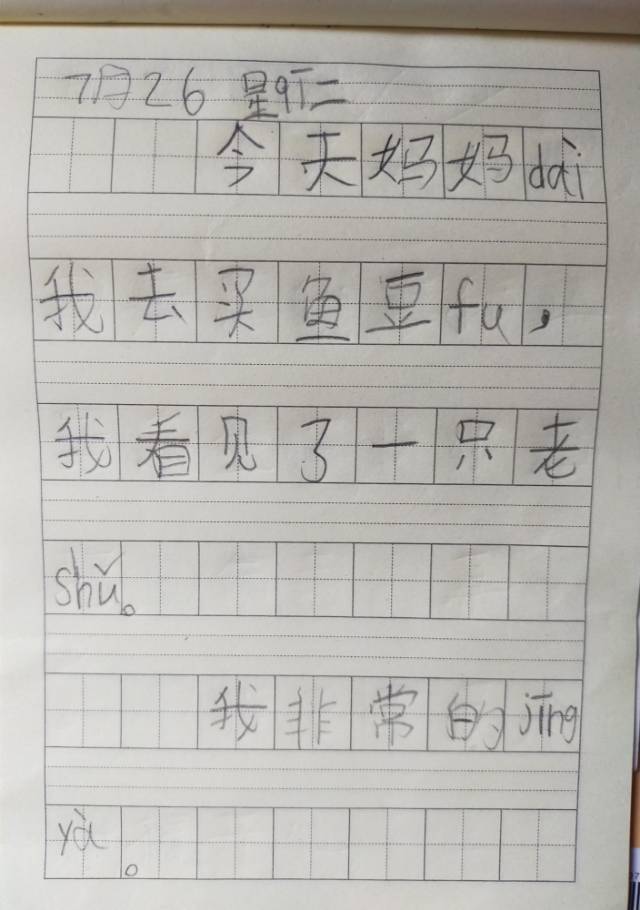 7月26 星期二
今天妈妈dài
我去买鱼豆fu,
我看见了一只老
shǔ。
我非常的jīng
yà。